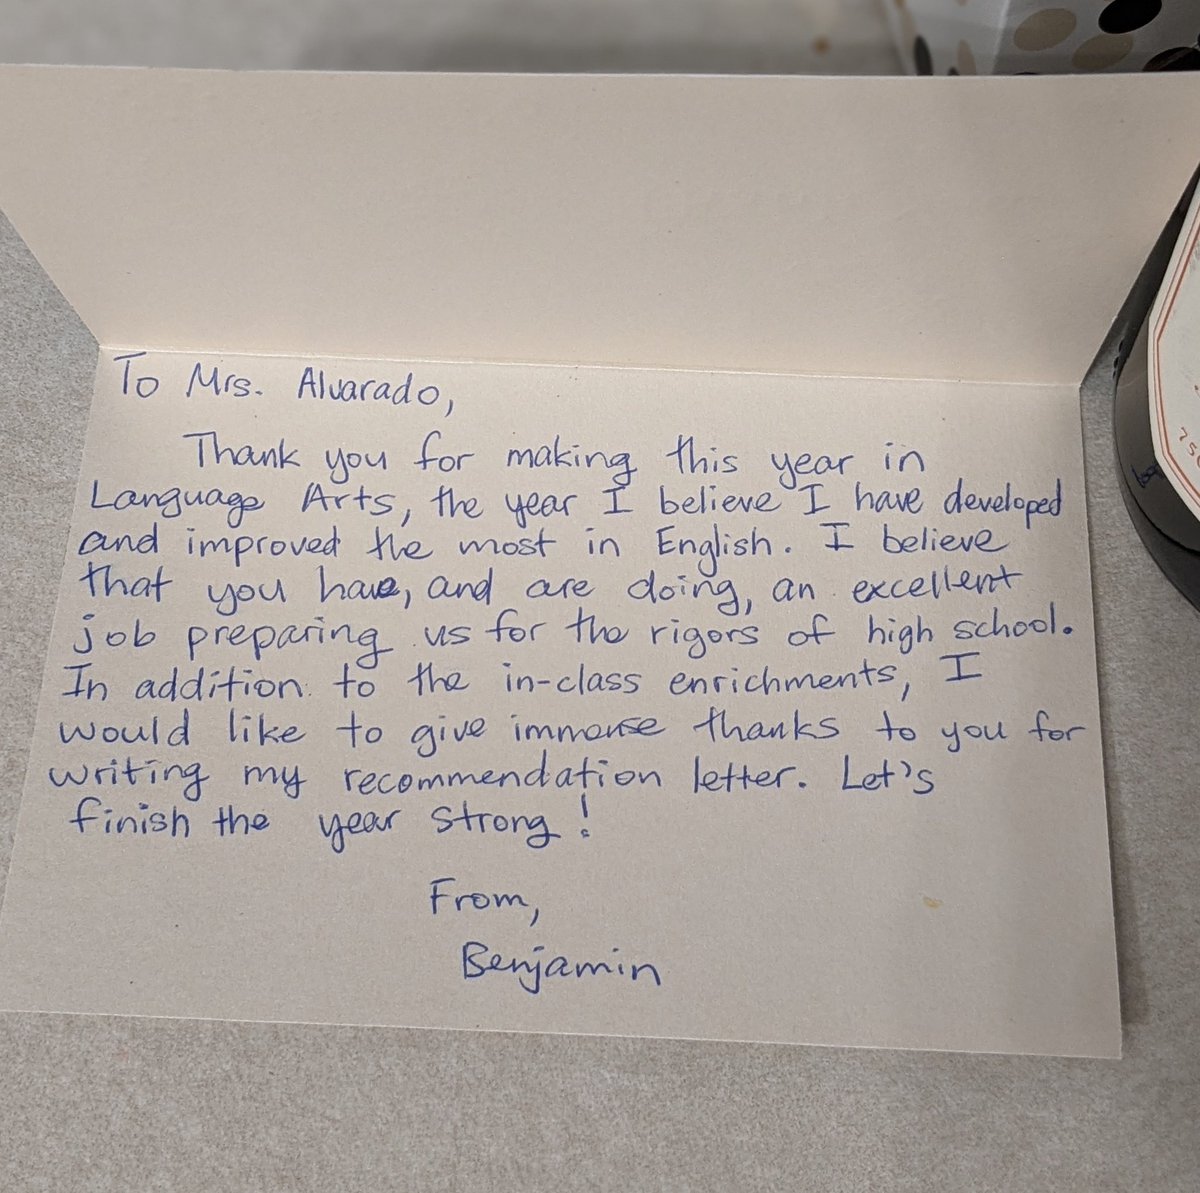 To Mrs. Alvarado,
Thank you for making this year in
Language Arts, the year I believe I have developed
and improved the most in English. I believe
that you have, and are doing, an excellent
job preparing us for the rigors of high school.
In addition to the in-class enrichments, I
would like to give immense thanks to you for
writing my recommendation letter. Let's
finish the year strong!
From,
Benjamin